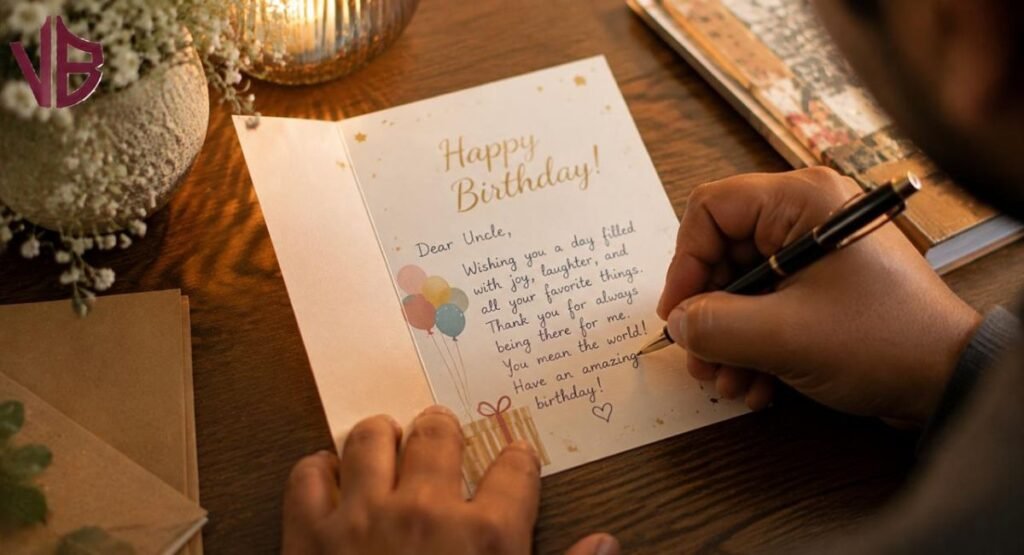 VB
Happy
Birthday!
Dear Uncle,
Wishing you a day filled
with joy, laughter, and
all your favorite things.
Thank you for always
being there for me.
You mean the world!
Have an amazing
birthday!